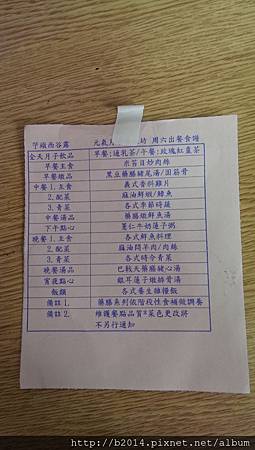 芋頭西谷露 元氣月 坊 周六出餐食譜
全天月子飲品 早餐:通乳茶/午餐:玫瑰紅棗茶
早餐主食 米苔目炒肉絲
早餐燉品 黑豆藥膳豬尾湯/固筋骨
中餐 1.主食 義式香料雞片
2.配菜 麻油鮮蝦/鱸魚
3.青菜 各式季節時蔬
中餐湯品 藥膳燉鮮魚湯
下午點心 薏仁牛奶蓮子粥
晚餐 1.主食 各式鮮魚料理
2.配菜 麻油悶羊肉/肉絲
3.青菜 各式時令青菜
晚餐湯品 巴戟天藥膳豬心湯
宵夜點心 銀耳蓮子燉排骨湯
飯類 各式養生雜糧飯
備註 1. 藥膳系列依階段性食補做調養
備註 2. 維護餐點品質*菜色更改將
不另行通知
http://b2014.pixnet.net/album